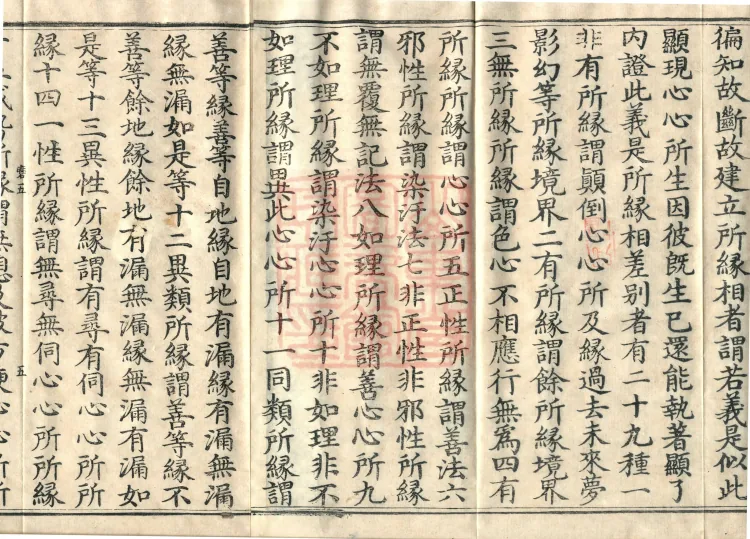 徧知故斷故建立所緣相者謂若義是似此
顯現心心所生因彼旣生已還能執著顯了
內證此義是所緣相差别者有二十九種一
非有所緣謂顚倒心心所及緣過去未來夢
影幻等所緣境界二有所緣謂餘所緣境界
三無所緣所緣謂色心不相應行無爲四有
所緣所緣謂心心所五正性所緣謂善法六
邪性所緣謂染汙法七非正性非邪性所緣
謂無覆無記法八如理所緣謂善心心所九
不如理所緣謂染汙心心所十非如理非不
如理所緣謂異此心心所十一同類所緣謂
善等緣善等自地緣自地有漏緣有漏無漏
緣無漏如是等十二異類所緣謂善等緣不
善等餘地緣餘地有漏無漏緣無漏有漏如
是等十三異性所緣謂有尋有伺心心所所
緣十四一性所緣謂無尋無伺心心所所緣
五